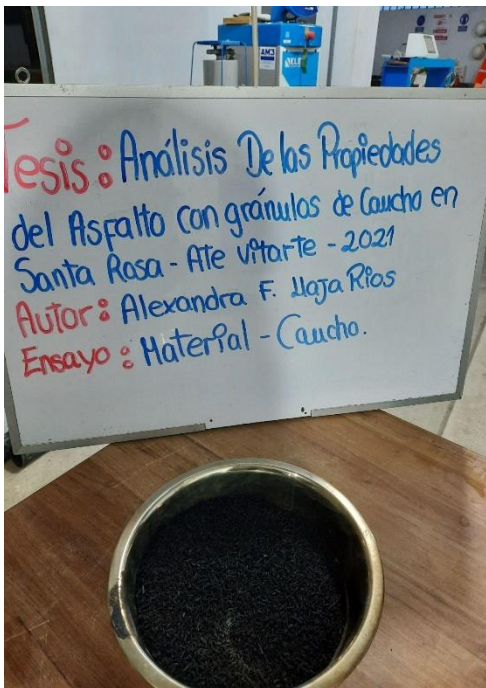 AM3
ELE
Tesis: Análisis De las Propiedades
del Asfalto con gránulos de Caucho en
Santa Rosa - Ate vitarte - 2021
Autor: Alexandra F. LLaja Rios
Ensayo: Material - Caucho.